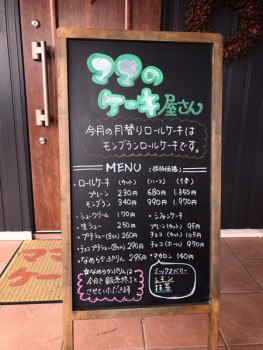 ママの
ケーキ屋さん
今月の月替りロールケーキは
モンブランロールケーキです。
MENU (税抜価格)
・ロールケーキ (カット) (ハーフ) (1本)
プレーン 230円 680円 1,350円
モンブラン 340円 990円 1,970円
・シュークリーム 170円
・生シュー 250円
・プチシュー(8ヶ) 260円
・チョコプチシュー(8ヶ) 290円
・なめらかぷりん 295円
・シフォンケーキ
プレーン(カット) 95円
チョコ(カット) 105円
チョコ(ホール) 970円
・マカロン 140円
ミックスベリー
レモン
抹茶
なめらかぷりんは
今月で販売終了と
させていただきます